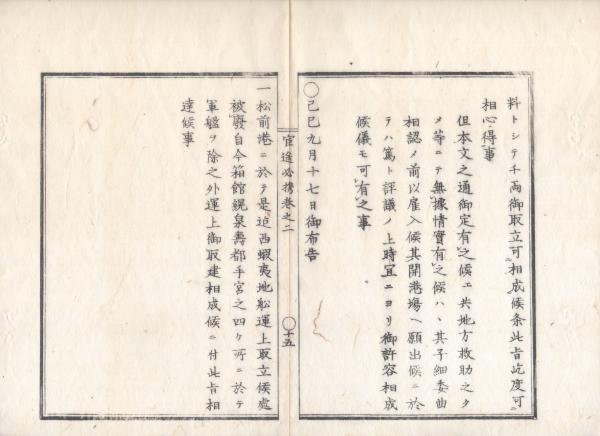 料トシテ千両御取立可相成候条此旨屹度可
相心得事
但本文之通御定有之候エ共地方救助之タ
メ等ニテ無據情實有之候ハヽ其子細委曲
相認メ前以雇入候其開港場ヘ願出候ニ於
テハ篤ト評議ノ上時宜ニヨリ御許容相成
候儀モ可有之事
〇己巳九月十七日御布告
官途必携巻之二
〇十五
一松前港ニ於テ是迄西蝦夷地舩運上取立候處
被廢自今箱館幌泉壽都手宮之四ケ所ニ於テ
軍艦ヲ除之外運上御取建相成候ニ付此旨相
達候事